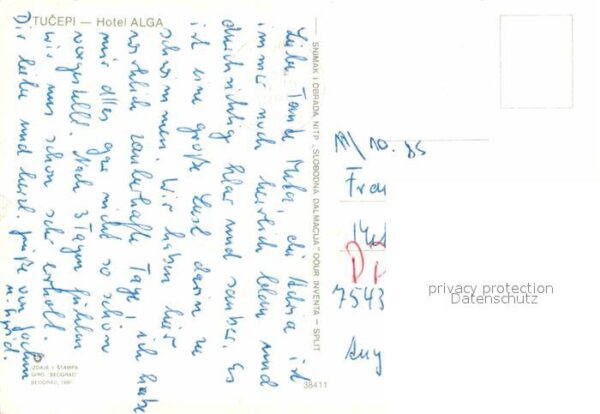 TUČEPI — Hotel ALGA
Liebe Tante Mila, die Adria ist
immer noch herrlich blau und
durchsichtig klar und sauber. Es
ist eine große Lust darin zu
schwimmen. Wir haben hier
wirklich zauberhafte Tage, ich habe
mir alles gar nicht so schön
vorgestellt. Nach 3 Tagen fühlen
wir uns schon sehr erholt.
Dir liebe und herzl. Grüße von Jochen
SNIMAK I OBRADA NITP „SLOBODNA DALMACIJA" OOUR INVENTA — SPLIT
IZDAJE I ŠTAMPA
GIRO "BEOGRAD"
BEOGRAD,
38411
10.85
Frau
7543
privacy protection
Datenschutz